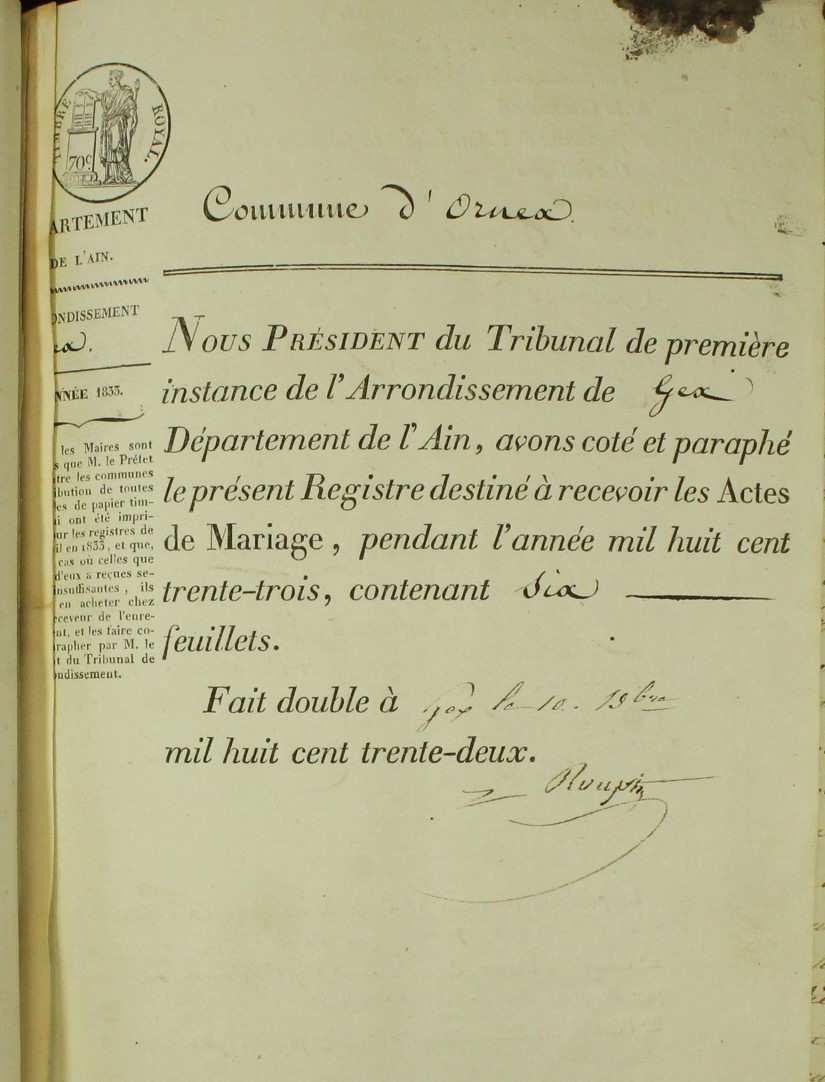 TIMBRE ROYAL.
70c
ARTEMENT
DE L'AIN.
ONDISSEMENT
ex.
NNÉE 1833.
les Maires sont
s que M. le Préfet
tre les communes
ibution de toutes
es de papier tim-
i ont été impri-
ur les registres de
il en 1833, et que,
cas où celles que
d'eux a reçues se-
insuffisantes, ils
en acheter chez
ceveur de l'enre-
nt, et les faire co-
rapher par M. le
t du Tribunal de
ndissement.
Commune d'Ornex.
NOUS PRÉSIDENT du Tribunal de première
instance de l'Arrondissement de Gex
Département de l'Ain, avons coté et paraphé
le présent Registre destiné à recevoir les Actes
de Mariage, pendant l'année mil huit cent
trente-trois, contenant Six
feuillets.
Fait double à Gex le 10.
mil huit cent trente-deux.